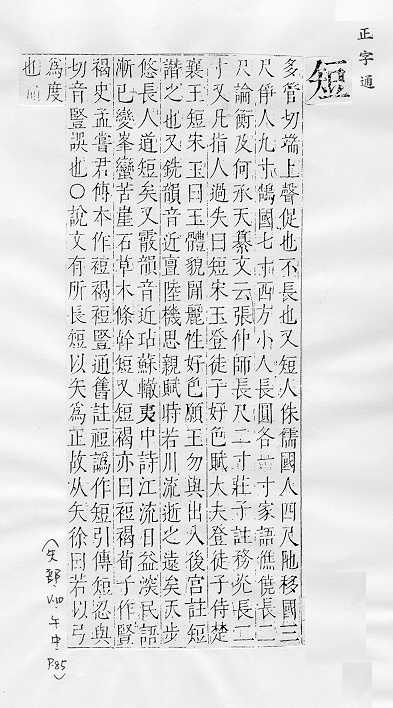 正字通
短
多管切端上聲促也不長也又短人侏儒國人四尺䶔移國三
尺僔人九寸鵠國七寸西方小人長圓各廿寸家語僬僥長二
尺論衡及何承天纂文云張仲師長尺二寸莊子註務光長二
寸又凡指人過失曰短宋玉登徒子好色賦大夫登徒子侍楚
襄王短宋玉曰玉體貌閒麗性好色願王勿與出入後宮註短
譖之也又銑韻音近亶陸機思親賦時若川流逝之遠矣天步
悠長人道短矣又霰韻音近玷蘇轍夷中詩江流日益深民語
漸已變峯巒苦崖石草木條幹短又短褐亦曰裋褐荀子作豎
褐史孟嘗君傳本作裋褐裋豎通舊註裋譌作短引傳短忍與
切音豎誤也〇說文有所長短以矢為正故从矢徐曰若以弓
為度
也
(矢部
V.10
午中
P.85)